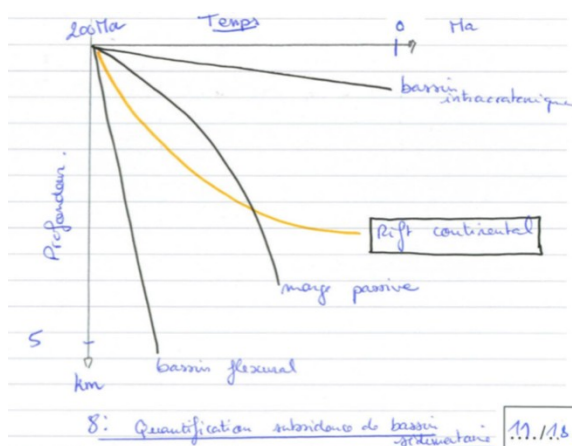 200Ma Temps 0 Ma
bassin
intracratonique
Profondeur.
Rift continental
marge passive
5
bassin flexural
km
8: Quantification subsidence de bassin
sédimentaire
11/18